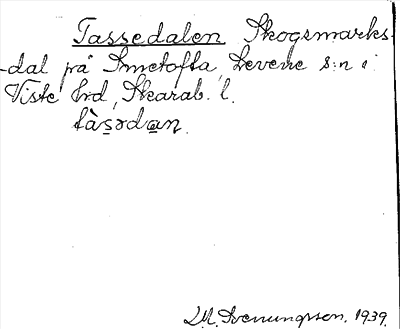 Tassedalen Skogsmarks-
-dal på Smetofta, Levene s:n i
Viste hrd, Skarab. l.
tàsədan.
Svenungsson. 1939.